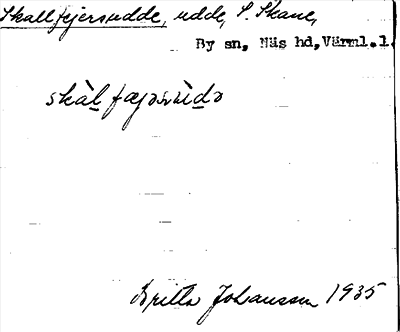 Skallfjersudde, udde, S. Skane,
By sn, Näs hd, Värml. l.
skàl fæjəsùdə
Britta Johansson 1935